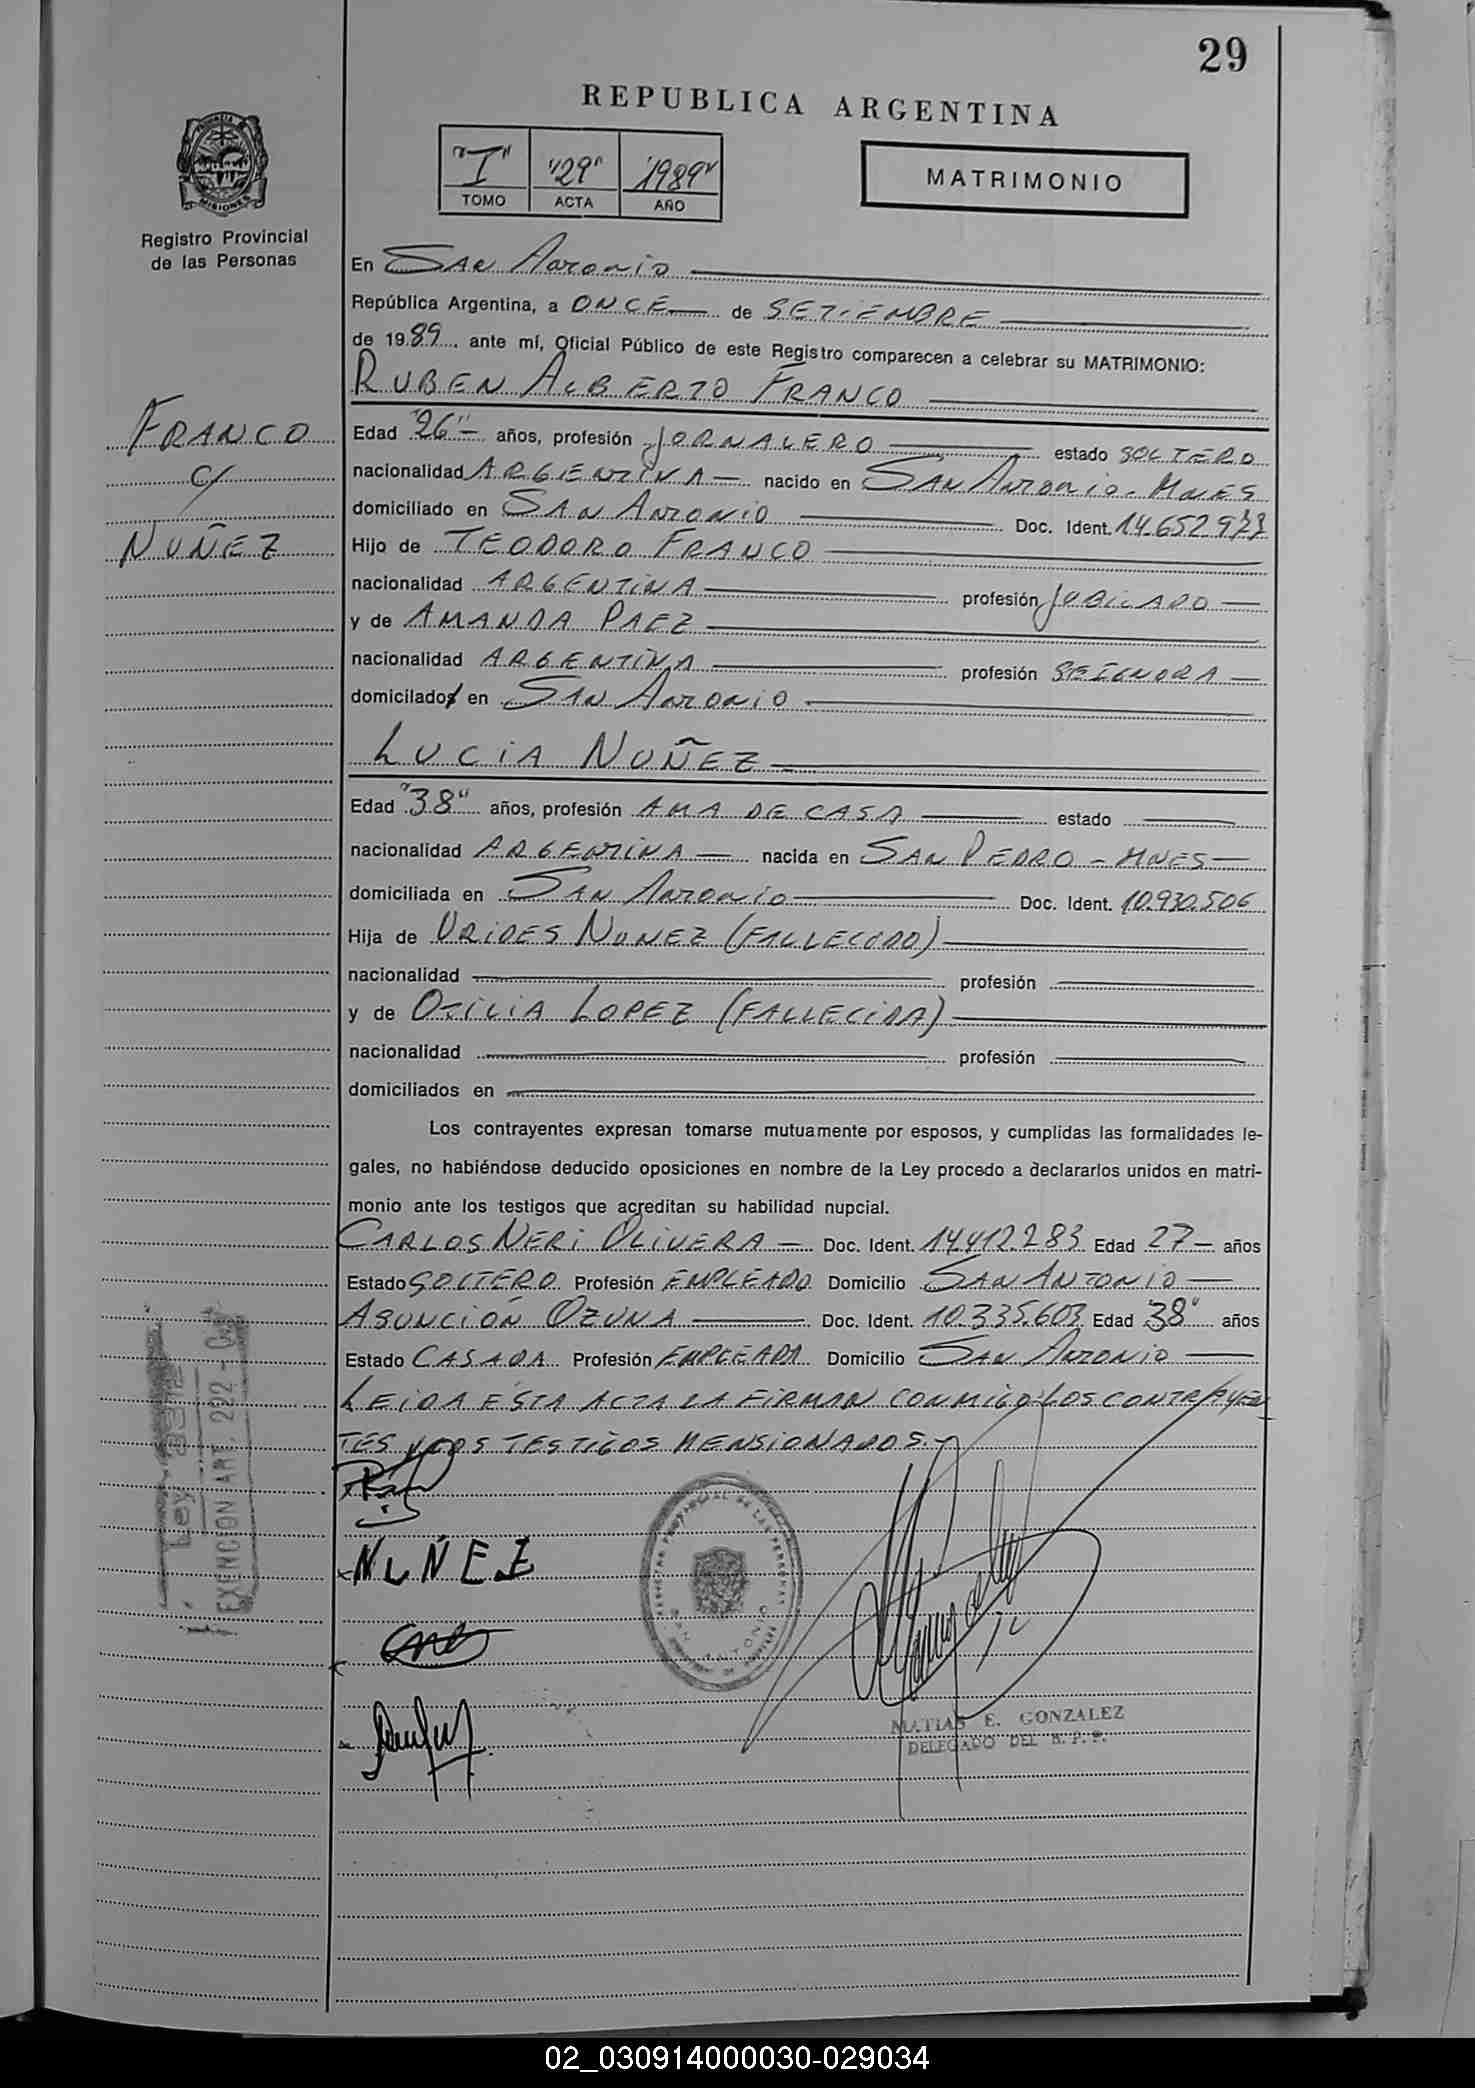 29
REPUBLICA ARGENTINA
"I" "29" "1989"
TOMO ACTA AÑO
MATRIMONIO
PROVINCIA DE
MISIONES
Registro Provincial
de las Personas
En SAN ANTONIO
República Argentina, a ONCE de SETIEMBRE
de 1989, ante mí, Oficial Público de este Registro comparecen a celebrar su MATRIMONIO:
RUBEN ALBERTO FRANCO
FRANCO
c/
NUÑEZ
Edad "26" años, profesión JORNALERO estado SOLTERO
nacionalidad ARGENTINA nacido en SAN ANTONIO - MNES
domiciliado en SAN ANTONIO Doc. Ident. 14.652.973
Hijo de TEODORO FRANCO
nacionalidad ARGENTINA profesión JUBILADO
y de AMANDA PAEZ
nacionalidad ARGENTINA profesión
domicilados en SAN ANTONIO
LUCIA NUÑEZ
Edad "38" años, profesión AMA DE CASA estado
nacionalidad ARGENTINA nacida en SAN PEDRO - MNES
domiciliada en SAN ANTONIO Doc. Ident. 10.930.506
Hija de URIDES NUNEZ (FALLECIDO)
nacionalidad profesión
y de OTILIA LOPEZ (FALLECIDA)
nacionalidad profesión
domiciliados en
Los contrayentes expresan tomarse mutuamente por esposos, y cumplidas las formalidades le-
gales, no habiéndose deducido oposiciones en nombre de la Ley procedo a declararlos unidos en matri-
monio ante los testigos que acreditan su habilidad nupcial.
CARLOS NERI OLIVERA Doc. Ident. 14.412.283 Edad 27 años
Estado SOLTERO Profesión EMPLEADO Domicilio SAN ANTONIO
ASUNCIÓN OZUNA Doc. Ident. 10.335.603 Edad 38" años
Estado CASADA Profesión EMPLEADA Domicilio SAN ANTONIO
LEIDA ÉSTA ACTA LA FIRMAN CONMIGO LOS CONTRAYEN
TES Y LOS TESTIGOS MENSIONADOS.-
Ley
EXENCION ART. 292
NUÑEZ
REGISTRO PROVINCIAL DE LAS PERSONAS
SAN ANTONIO
MATIAS E. GONZALEZ
DELEGADO DEL R. P. P.
02_030914000030-029034